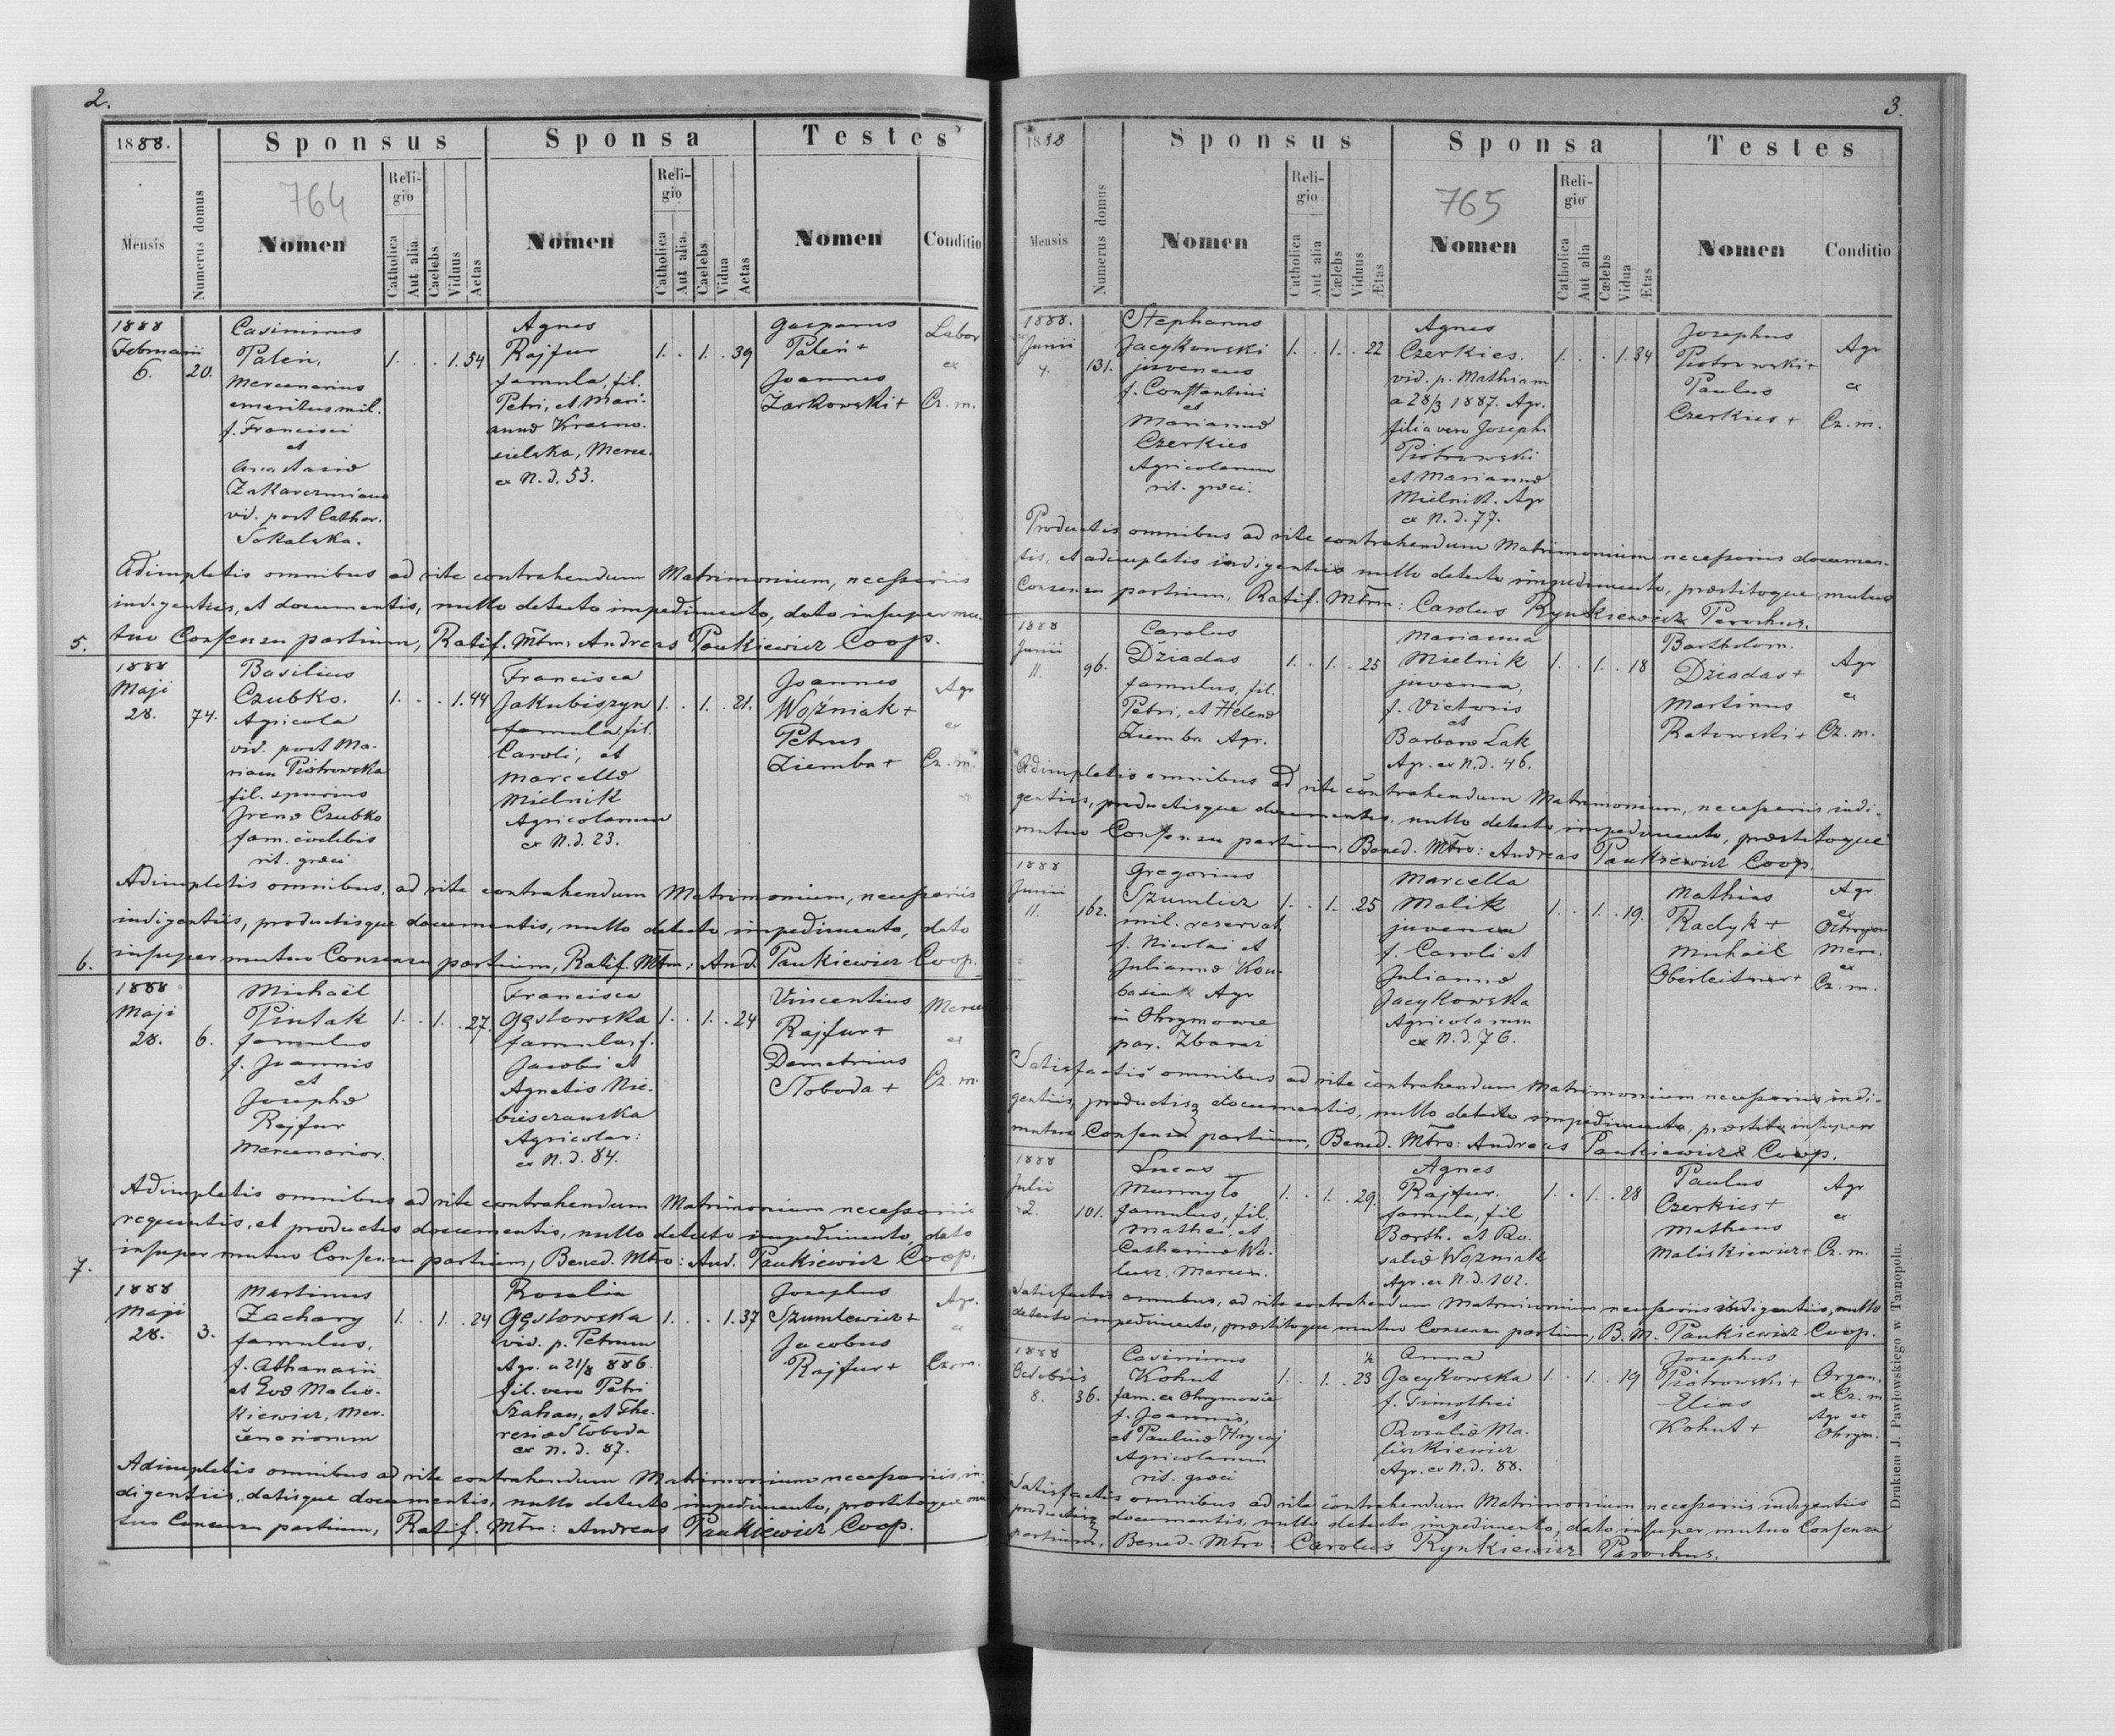 2.
1888.
Sponsus
Sponsa
Testes
764
Mensis
Numerus domus
Nomen
Religio
Catholica
Aut alia
Caelebs
Viduus
Aetas
Nomen
Religio
Catholica
Aut alia
Caelebs
Vidua
Aetas
Nomen
Conditio
1888
Februarii
6.
20.
Casimirus
Paleń,
Mercenarius
emeritus mil.
f. Francisci
et
Anastasiæ
vid. post Cathar.
Sokalska.
1. . . 1. 54
Agnes
Rajfur
famula, fil.
Petri, et Mari-
annæ Krasno-
sielska, Merce.
ex N. d. 53.
1. . 1. . 39
Gasparus
Paleń +
Joannes
Żarkowski +
Labor
ex
Cz. m.
Adimpletis omnibus ad rite contrahendum Matrimonium, necessariis
indigentiis, et documentis, nullo detecto impedimento, dato insuper mu-
tuo Consensu partium, Ratif. Mtrm: Andreas Paukiewicz Coop.
5.
1888
Maji
28.
74.
Basilius
Czubko.
Agricola
vid. post Ma-
riam Piotrowska
fil. spurius
Irenæ Czubko
fam. cœlibis
rit. græci
1. . . 1. 44
Francisca
Jakubiszyn
famula, fil.
Caroli, et
Marcellæ
Mielnik
Agricolarum
ex N. d. 23.
1. . 1. . 21.
Joannes
Woźniak +
Petrus
Ziemba +
Agr
ex
Cz. m.
Adimpletis omnibus, ad rite contrahendum Matrimonium, necessariis
indigentiis, productisque documentis, nullo detecto impedimento, dato
insuper mutuo Consensu partium, Ratif. Mtrm: And. Paukiewicz Coop.
6.
1888
Maji
28.
6.
Michaël
Pintak
famulus
f. Joannis
et
Josephæ
Rajfur
Mercenarior.
1. . 1. . 27.
Francisca
Gęstowska
famula, f.
Jacobi et
Agnetis Nie-
bieszczanska
Agricolar:
ex N. d. 84.
1. . 1. . 24
Vincentius
Rajfur +
Demetrius
Słoboda +
Merce
ex
Cz. m.
Adimpletis omnibus ad rite contrahendum Matrimonium necessariis
requisitis, et productis documentis, nullo detecto impedimento, dato
insuper mutuo Consensu partium, Bened. Mtro: And. Paukiewicz Coop.
7.
1888
Maji
28.
3.
Martinus
Zachary
famulus,
f. Athanasii
et Evæ Malis-
kiewicz, Mer-
cenariorum
1. . 1. . 24
Rosalia
Gęstowska
vid. p. Petrum
Agr. a 21/8 886.
fil. vero Petri
Szahan, et The-
resiæ Słoboda
ex N. d. 87.
1. . . 1. 37
Josephus
Szumlewicz +
Jacobus
Rajfur +
Agr.
ex
Cz. m.
Adimpletis omnibus ad rite contrahendum Matrimonium necessariis, in-
digentiis, datisque documentis, nullo detecto impedimento, præstitoque mu
tuo Consensu partium, Ratif. Mtrm: Andreas Paukiewicz Coop.
3.
1888
Sponsus
Sponsa
Testes
765
Mensis
Numerus domus
Nomen
Religio
Catholica
Aut alia
Cælebs
Viduus
Ætas
Nomen
Religio
Catholica
Aut alia
Cælebs
Vidua
Ætas
Nomen
Conditio
1888.
Junii
4.
131.
Stephanus
Jacykowski
juvencus
f. Constantini
et
Mariannæ
Czerkies
Agricolarum
rit. græci.
1. . 1. . 22
Agnes
Czerkies.
vid. p. Mathiam
a 28/3 1887. Agr.
filia vero Josephi
Piotrowski
et Mariannæ
Mielnik. Agr
ex N. d. 77.
1. . . 1. 34
Josephus
Piotrowski +
Paulus
Czerkies +
Agr
ex
Cz. m.
Productis omnibus ad rite contrahendum Matrimonium necessariis documen-
tis, et adimpletis indigentiis nullo detecto impedimento, præstitoque mutuo
Consensu partium, Ratif. Mtrm: Carolus Rynkiewicz Parochus.
1888
Junii
11.
96.
Carolus
Dziadas
famulus, fil.
Petri, et Helenæ
Ziemba Agr.
1. . 1. . 25
Marianna
Mielnik
juvenca,
f. Victoris
et
Barbaræ Lak
Agr. ex N. d. 46.
1. . 1. . 18
Bartholom.
Dziadas +
Martinus
Ratowski +
Agr
ex
Cz. m.
Adimpletis omnibus ad rite contrahendum Matrimonium, necessariis indi-
gentiis, productisque documentis, nullo detecto impedimento, præstitoque
mutuo Consensu partium, Bened. Mtro: Andreas Paukiewicz Coop.
1888
Junii
11.
162.
Gregorius
Szumlicz
mil. reservat.
f. Nicolai et
Juliannæ Kou-
basiuk Agr
in Ohrymowce
par. Zbaraz
1. . 1. . 25
Marcella
Malik
juvenca
f. Caroli et
Juliannæ
Jacykowska
Agricolarum
ex N. d. 76.
1. . 1. . 19.
Mathias
Radyk +
Michaël
Oberleitner +
Agr
ex
Merc.
ex
Cz. m.
Satisfactis omnibus ad rite contrahendum Matrimonium necessariis indi-
gentiis, productisq documentis, nullo detecto impedimento, præstito insuper
mutuo Consensu partium, Bened. Mtro: Andreas Paukiewicz Coop.
1888
Julii
2.
101.
Lucas
famulus, fil.
Mathei, et
Catharinæ Wa-
lusz, Mercen.
1. . 1. . 29.
Agnes
Rajfur.
famula, fil
Barth. et Ro-
saliæ Wozniak
Agr. ex N. d. 102.
1. . 1. . 28
Paulus
Czerkies +
Matheus
Maliskiewicz +
Agr
ex
Cz. m.
Satisfactis omnibus, ad rite contrahendum Matrimonium necessariis indigentiis, nullo
detecto impedimento, præstitoque mutuo Consensu partium, B. M. Paukiewicz Coop.
1888
Octobris
8.
36.
Casimirus
Kohut
fam. ex Ohrymowce
f. Joannis,
et Paulinæ Hrycaj
Agricolarum
rit. græci
1. . 1. . 23
½
Anna
Jacykowska
f. Timothei
et
Rosaliæ Ma-
liszkiewicz
Agr. ex N. d. 88.
1. . 1. . 19
Josephus
Piotrowski +
Elias
Kohut +
Organ.
ex Cz. m
Agr ex
Ohrym.
Satisfactis omnibus ad rite contrahendum Matrimonium necessariis indigentiis
productisq documentis, nullo detecto impedimento, dato insuper mutuo Consensu
partium, Bened. Mtro: Carolus Rynkiewicz Parochus.
Drukiem J. Pawłowskiego w Tarnopolu.